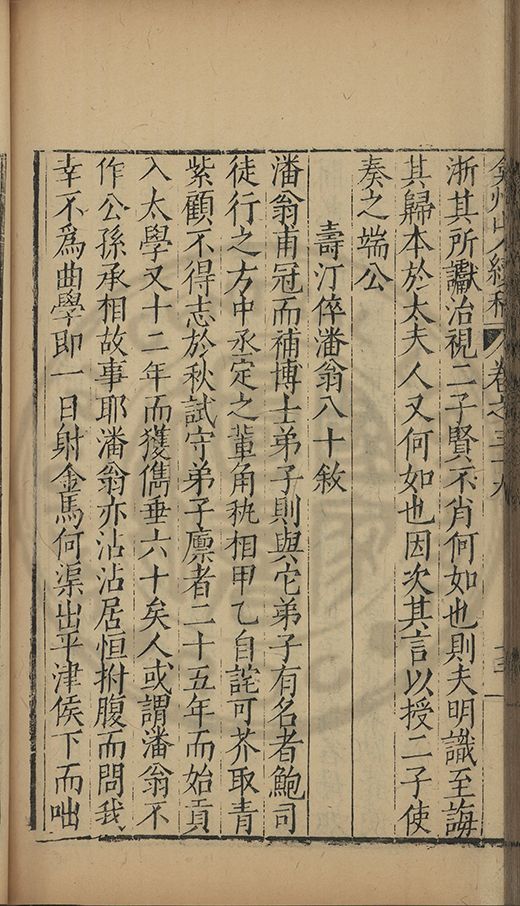 弇州山人續稿 卷之三十九 十三
浙其所讞治視二子賢不肖何如也則夫明識至誨
其歸本於太夫人又何如也因次其言以授二子使
奏之端公
壽汀倅潘翁八十敘
潘翁甫冠而補博士弟子則與它弟子有名者鮑司
徒行之方中丞定之輩角執相甲乙自詫可芥取青
紫顧不得志於秋試守弟子廪者二十五年而始貢
入太學又十二年而獲雋垂六十矣人或謂潘翁不
作公孫承相故事耶潘翁亦沾沾居恒拊腹而問我
幸不爲曲學即一日射金馬何渠出平津侯下而咄